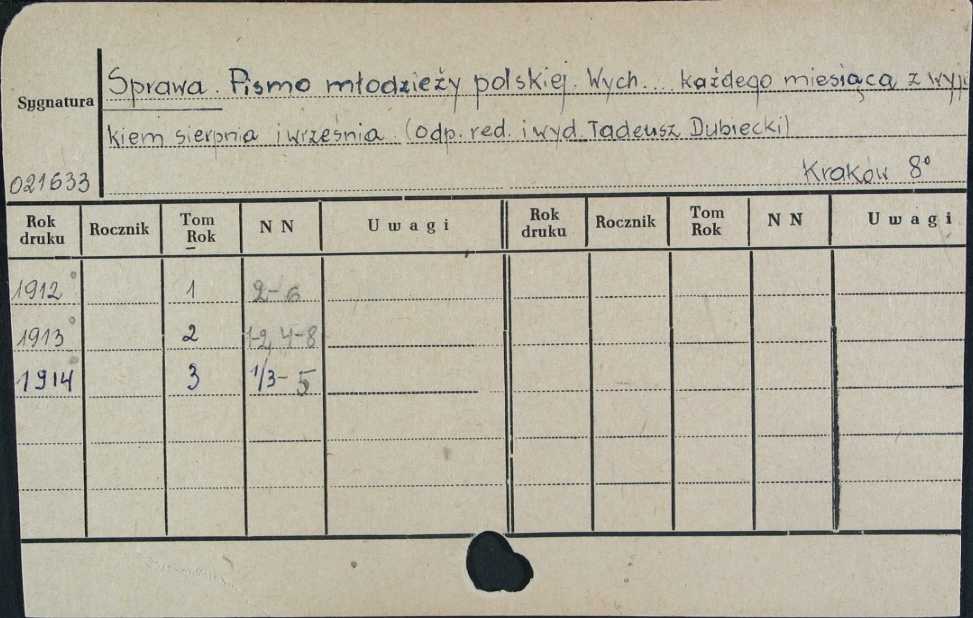 Sprawa. Pismo młodzieży polskiej. Wych.... każdego miesiąca z wyją
Sygnatura
kiem sierpnia i września. (odp. red. i wyd. Tadeusz Dubiecki)
021633
Kraków 8°
Rok druku Rocznik Tom Rok N N Uwagi Rok druku Rocznik Tom Rok N N Uwagi
1912 1 2-6
1913 2 1-2, 4-8
1914 3 1/3-5